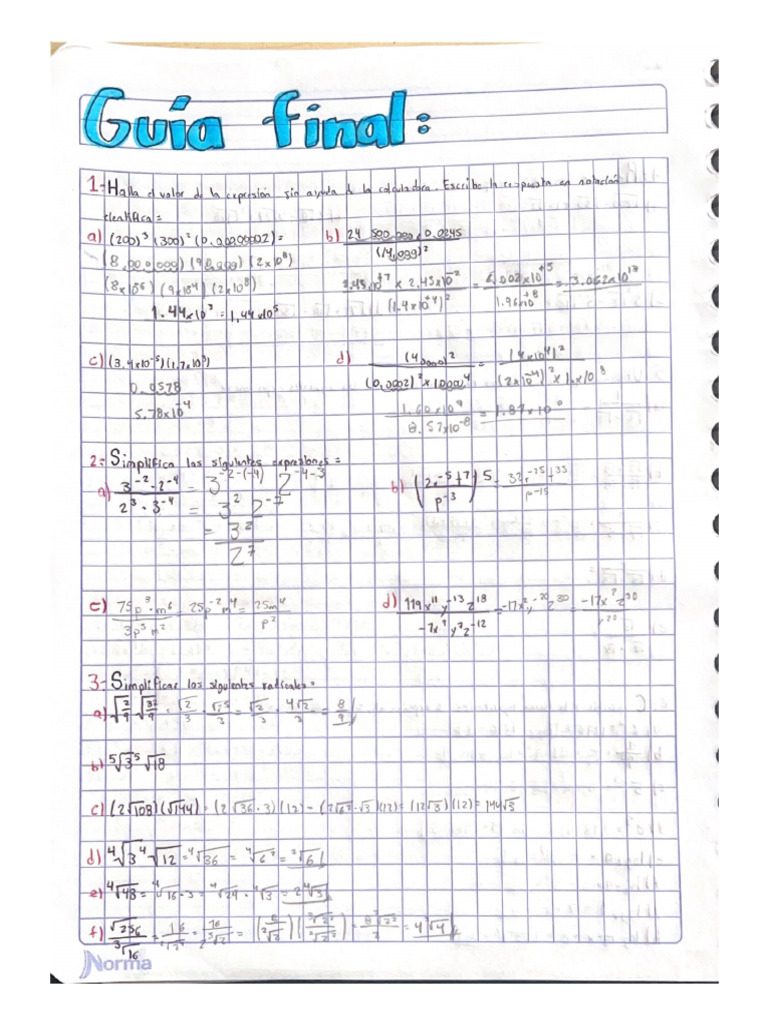 Guía final:
1.- Halla el valor de la expresión sin ayuda de la calculadora. Escribe la respuesta en notación
científica:
a) (200)³ (300)² (0.00000002)= b) 24 500,000 × 0.0245 / (14,000)²
(8,000,000) (90,000) (2×10⁸)
(8×10⁶) (9×10⁴) (2×10⁸) 2.45×10⁺⁷ × 2.45×10⁻² / (1.4×10⁺⁴)² = 6.002×10⁺⁵ / 1.96×10⁺⁸ = 3.062×10¹³
1.44×10³ = 1,44×10⁵
c) (3.4×10⁻⁵)(1.7×10³) d) (40000)² / (0.0002)² × 10000⁴ = (4×10⁴)² / (2×10⁻⁴)² × 1×10⁸
0.0578
5.78×10⁻⁴ 1.60×10⁹ / 8.57×10⁻⁸ = 1.87×10⁰
2.- Simplifica las siguientes expresiones =
a) 3⁻²·2⁻⁴ / 2³·3⁻⁴ = 3⁻²⁻⁽⁻⁴⁾ 2⁻⁴⁻³ b) (2r⁻⁵t⁷ / p⁻³)⁵ = 32r⁻²⁵t³⁵ / p⁻¹⁵
= 3² 2⁻⁷
= 3² / 2⁷
c) 75p³·m⁶ / 3p⁵m² = 25p⁻²m⁴ = 25m⁴ / p² d) 119x¹¹y⁻¹³z¹⁸ / -7x²y⁷z⁻¹² = -17x⁹y⁻²⁰z³⁰ = -17x⁹z³⁰ / y²⁰
3.- Simplificar los siguientes radicales =
a) √2/9 √32/9 = √2/3 · √2⁵/3 = √2/3 · 4√2/3 = 8/9
b) ⁵√3 ⁵√18
c) (2√108)(√144) = (2√36·3)(12) = (2√6²·√3)(12) = (12√3)(12) = 144√3
d) ⁴√3 ⁴√12 = ⁴√36 = ⁴√6² = ²√6
e) ⁴√48 = ⁴√16·3 = ⁴√24·⁴√3 = 2⁴√3
f) √256 / ³√16 = 16 / ³√2⁴ = 16 / 2³√2 = (8 / ³√2)(³√2² / ³√2²) = 8³√2² / 2 = 4³√4
Norma